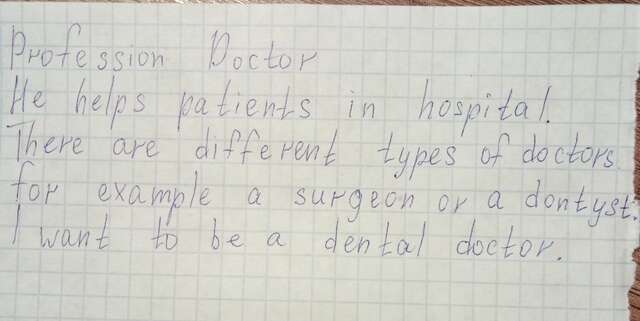 Profession Doctor
He helps patients in hospital.
There are different types of doctors
for example a surgeon or a dontyst.
I want to be a dental doctor.